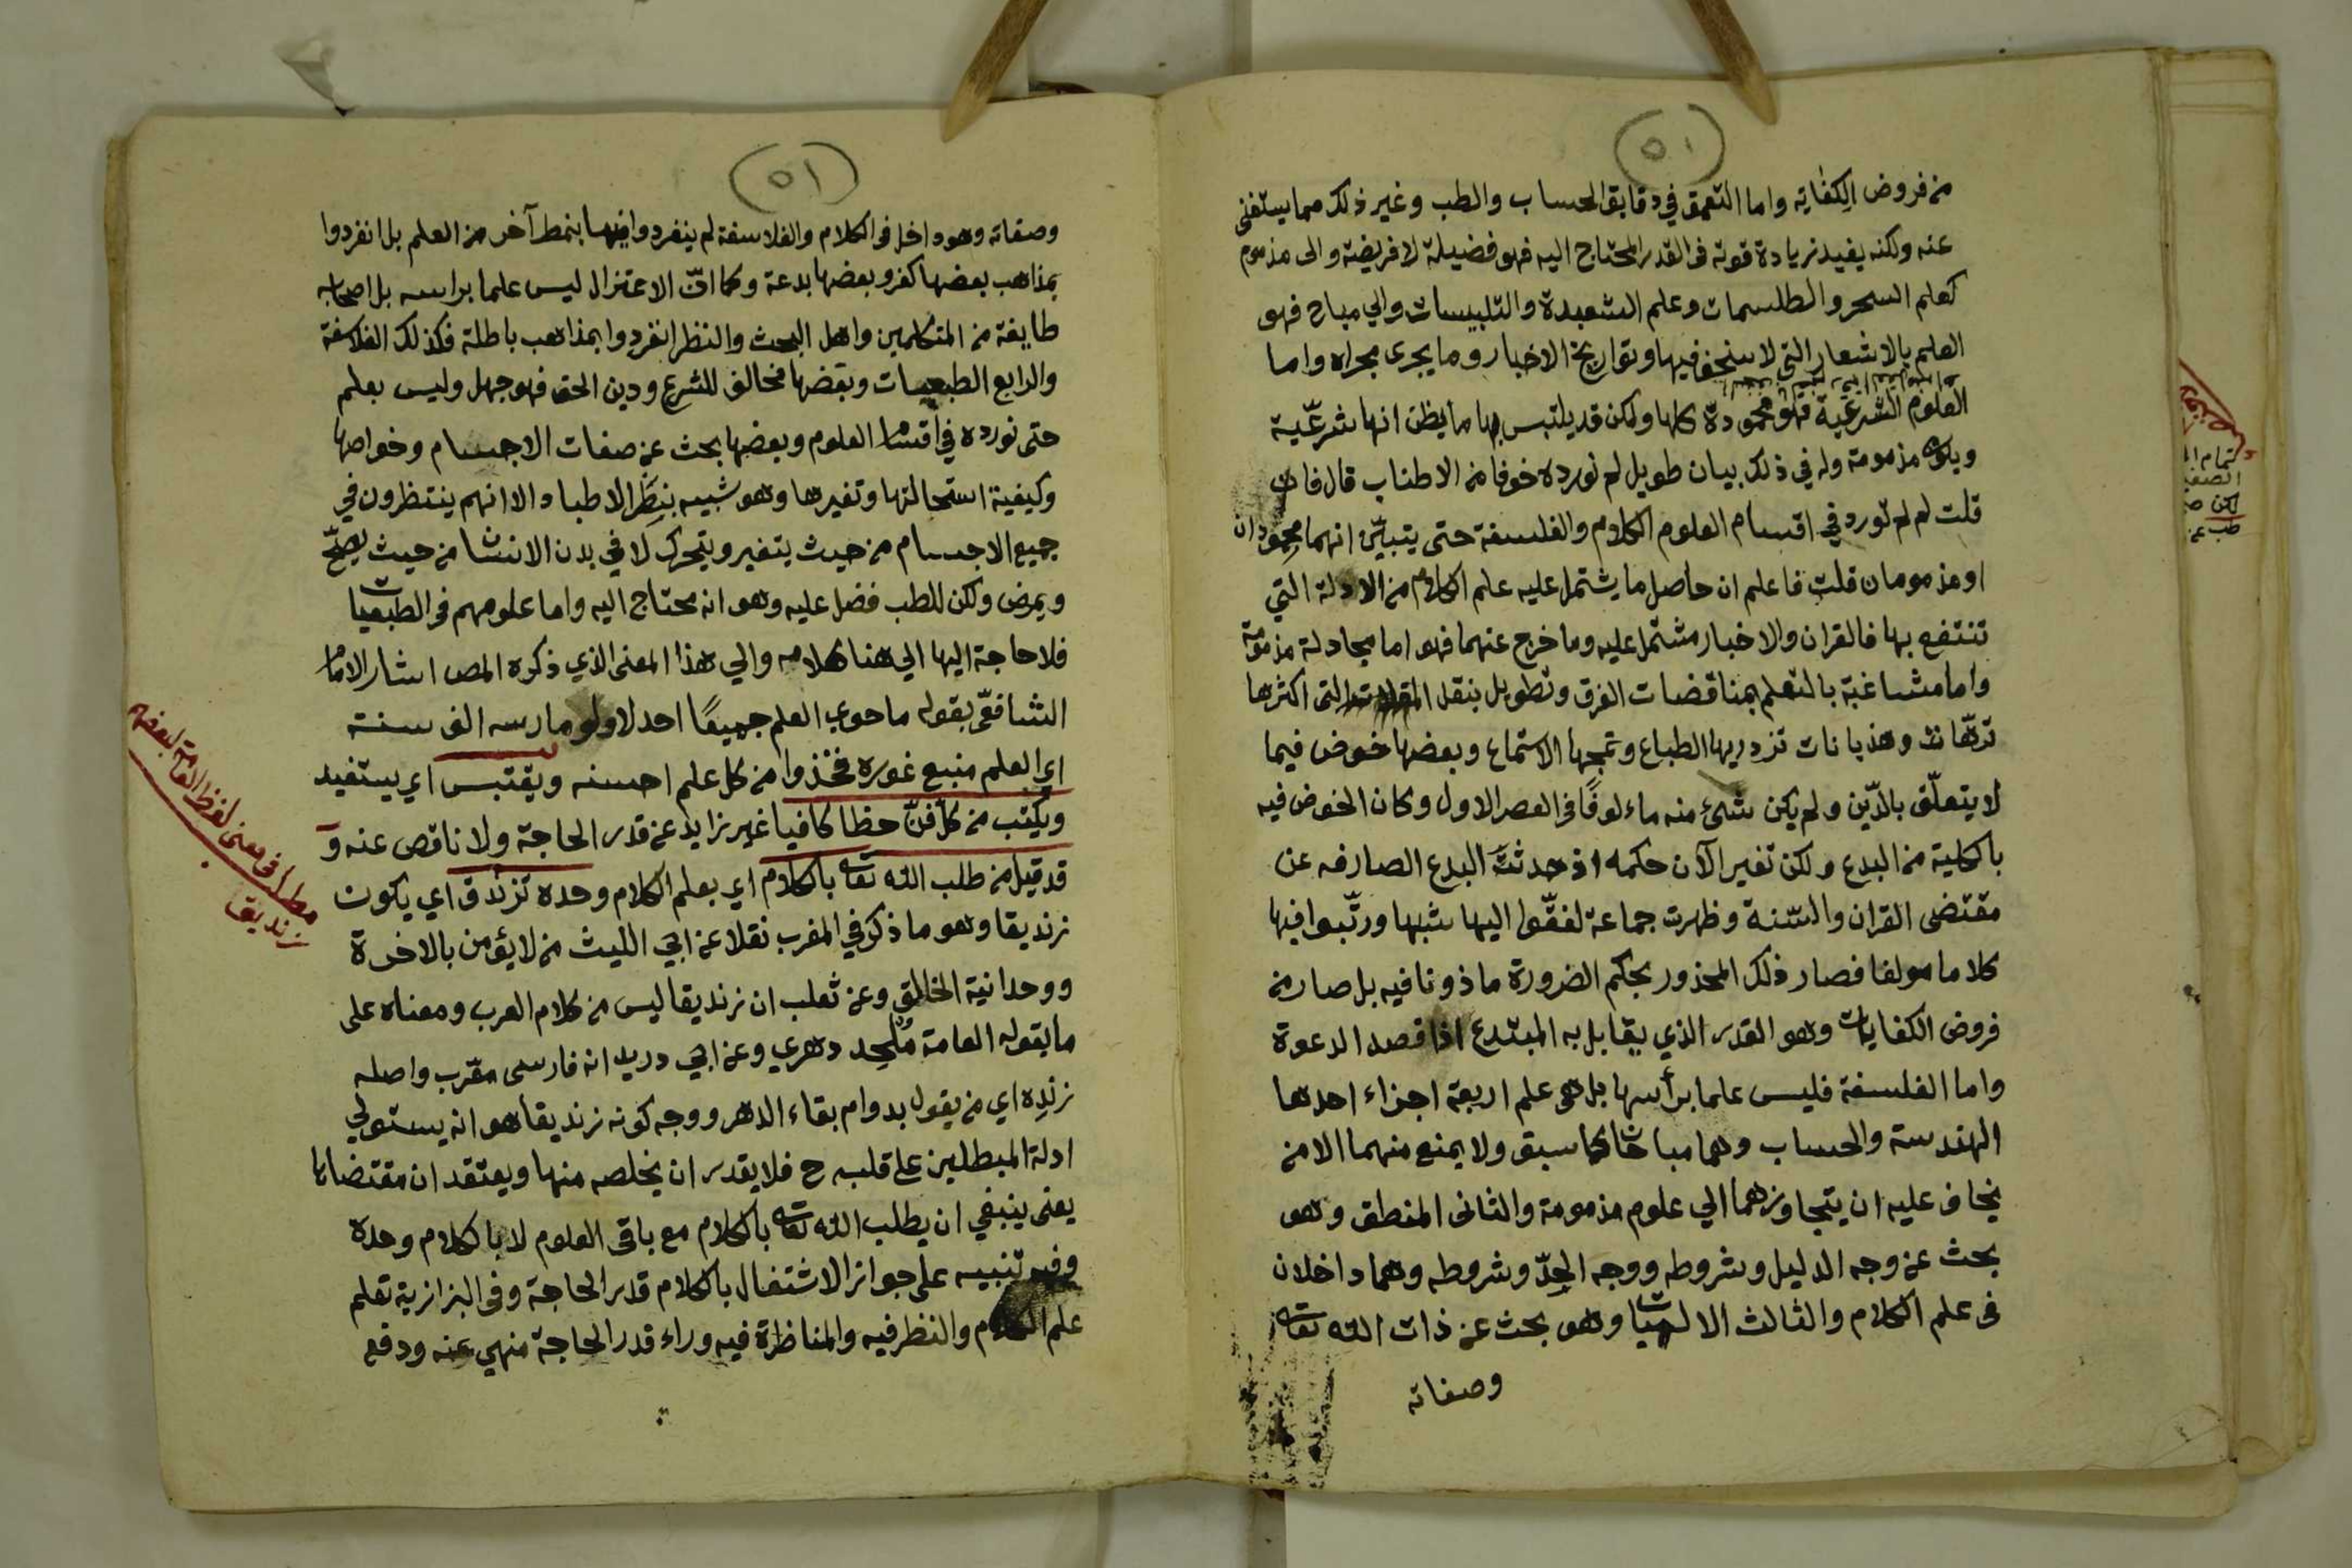 (٥٠)
من فروض الكفاية واما التعمق في دقايق الحساب والطب وغير ذلك مما يستغنى
عنه ولكنه يفيد زيادة قوته فى القدر المحتاج اليه فهو فضيلة لا فريضة والى مذموم
كعلم السحر والطلسمات وعلم الشعبدة والتلبيسات والي مباح فهو
العلم بالاشعار التي لا سخف فيها وتواريخ الاخبار وما يجرى مجراه واما
العلوم الشرعية فهو محمودة كلها ولكن قد يلتبس بها ما يظن انها شرعّية
ويكون مذمومة وله في ذلك بيان طويل لم نورده خوفا من الاطناب قال فان
قلت لم لم تورد في اقسام العلوم الكلام والفلسفة حتى يتبيّن انهما محمودان
او مذمومان قلت فاعلم ان حاصل ما يشتمل عليه علم الكلام من الادلة التي
تنتفع بها فالقران والاخبار مشتمل عليه وما خرج عنهما فهو اما مجادلة مذمومة
واما مشاغبة بالتعلم بمناقضات الفرق وتطويل بنقل المقالات التى اكثرها
ترّهات وهذيانات تزدريها الطباع وتمجها الاستماع وبعضها خوض فيما
لا يتعلّق بالدّين ولم يكن شئ منه ماءلوفًا فى العصر الاول وكان الخوض فيه
بالكلية من البدع ولكن تغير الآن حكمه اذ حدثت البدع الصارفه عن
مقتضى القران والسّنة وظهرت جماعة لفقّوا اليها شبها ورتّبوا فيها
كلاما مولفا فصار ذلك المحذور بحكم الضرورة ماذونا فيه بل صار من
فروض الكفايات وهو القدر الذي يقابل به المبتدع اذا قصد الدعوة
واما الفلسفة فليس علما برأسها بل هى علم اربعة اجزاء احدها
الهندسة والحساب وهما مباحان كما سبق ولا يمنع منهما الا من
يخاف عليه ان يتجاوزهما الي علوم مذمومة والثانى المنطق وهو
بحث عن وجه الدليل وشروطه ووجه الحدّ وشروطه وهما داخلان
فى علم الكلام والثالث الالهيات وهو بحث عن ذات الله تعالى
وصفاته
(٥١)
وصفاته وهو داخل فى الكلام والفلاسفة لم ينفردوا فيها بنمط آخر من العلم بل انفردوا
بمذاهب بعضها كفر وبعضها بدعة وكما انّ الاعتزال ليس علما براسه بل اصحابه
طايفة من المتكلمين واهل البحث والنظر انفردوا بمذاهب باطلة فكذلك الفلاسفة
والرابع الطبعيات وبعضها مخالف للشرع ودين الحق فهو جهل وليس بعلم
حتى نورده في اقسام العلوم وبعضها بحث عن صفات الاجسام وخواصها
وكيفية استحالتها وتغيرها وهو شبيه بنظر الاطباء الا انهم ينتظرون في
جميع الاجسام من حيث يتغير ويتحرك لا في بدن الانسان من حيث يصحّ
ويمرض ولكن للطب فضل عليه وهو انه محتاج اليه واما علومهم فى الطبعيات
فلا حاجة اليها الي هنا كلامه والي هذا المعنى الذي ذكره المص اشار الامام
الشافعّي بقوله ما حوى العلم جميعًا احد لا ولو مارسه الف سنة
اي العلم منبع غوره فخذوا من كل علم احسنه ويقتبس اي يستفيد
ويكتب من كل فنّ حظا كافيا غير زايد عن قدر الحاجة ولا ناقص عنه و
قد قيل من طلب الله تعالى بالكلام اي بعلم الكلام وحده تزندق اي يكون
زنديقا وهو ما ذكر في المغرب نقلا عن ابي الليث من لا يؤمن بالاخرة
ووحدانية الخالق وعن ثعلب ان زنديقا ليس من كلام العرب ومعناه على
ما يقوله العامة مُلحِد دهري وعن ابي دريد انه فارسى معّرب واصله
زنده اي من يقول بدوام بقاء الدهر ووجه كونه زنديقا هو انه يستولي
ادلة المبطلين على قلبه ح فلا يقدر ان يخلصه منها ويعتقد ان مقتضاها
يعنى ينبغي ان يطلب الله تعالى بالكلام مع باقى العلوم لا بالكلام وحده
وفيه تنبيه على جواز الاشتغال بالكلام قدر الحاجة وفى البزازية تعلم
علم الكلام والنظر فيه والمناظرة فيه وراء قدر الحاجة منهي عنه ودفع
مطلب فى معنى لفظ العامة لبعضهم
زنديق